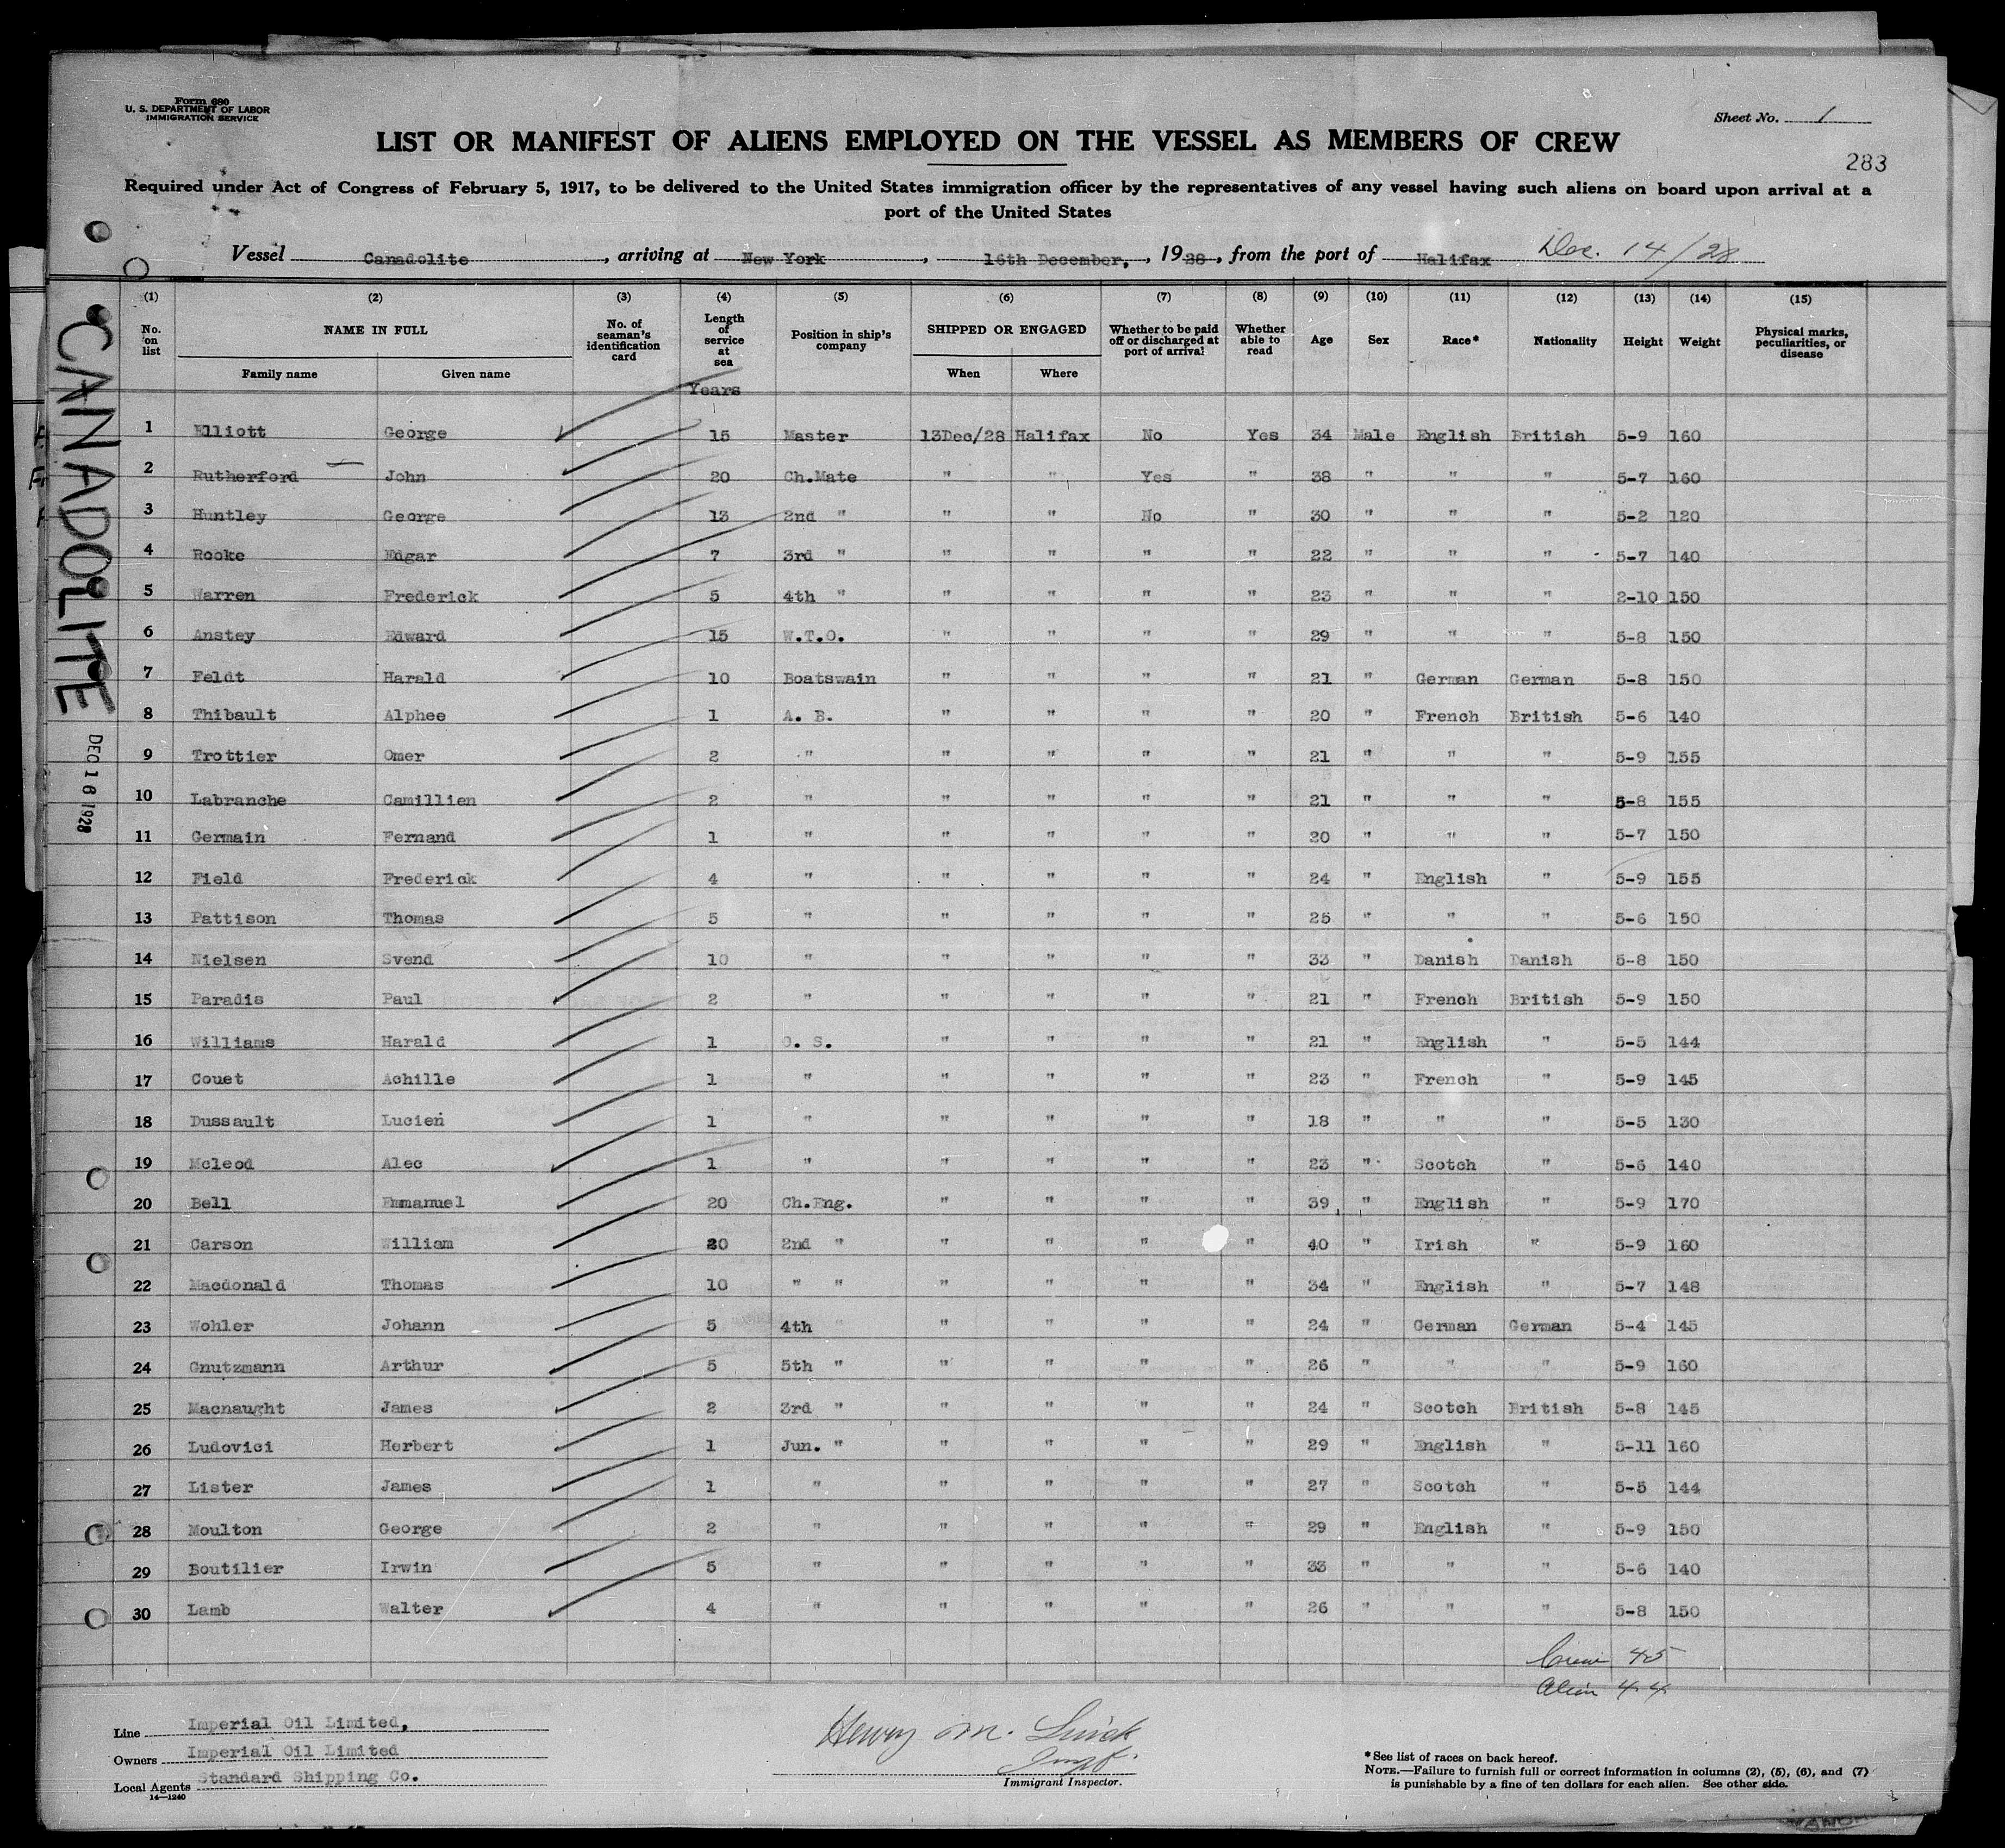 Form 680
U. S. DEPARTMENT OF LABOR
IMMIGRATION SERVICE
Sheet No. 1
LIST OR MANIFEST OF ALIENS EMPLOYED ON THE VESSEL AS MEMBERS OF CREW
283
Required under Act of Congress of February 5, 1917, to be delivered to the United States immigration officer by the representatives of any vessel having such aliens on board upon arrival at a
port of the United States
Vessel Canadolite, arriving at New York, 16th December, 1928, from the port of Halifax Dec. 14/28
(1) (2) (3) (4) (5) (6) (7) (8) (9) (10) (11) (12) (13) (14) (15)
No. on list NAME IN FULL Family name Given name No. of seaman's identification card Length of service at sea Position in ship's company SHIPPED OR ENGAGED When Where Whether to be paid off or discharged at port of arrival Whether able to read Age Sex Race* Nationality Height Weight Physical marks, peculiarities, or disease
Years
1 Elliott George 15 Master 13Dec/28 Halifax No Yes 34 Male English British 5-9 160
2 Rutherford John 20 Ch.Mate " " Yes " 38 " " " 5-7 160
3 Huntley George 13 2nd " " " No " 30 " " " 5-2 120
4 Rooke Edgar 7 3rd " " " " " 22 " " " 5-7 140
5 Warren Frederick 5 4th " " " " " 23 " " " 2-10 150
6 Anstey Edward 15 W.T.O. " " " " 29 " " " 5-8 150
7 Feldt Harald 10 Boatswain " " " " 21 " German German 5-8 150
8 Thibault Alphee 1 A. B. " " " " 20 " French British 5-6 140
9 Trottier Omer 2 " " " " " 21 " " " 5-9 155
10 Labranche Camillien 2 " " " " " 21 " " " 5-8 155
11 Germain Fernand 1 " " " " " 20 " " " 5-7 150
12 Field Frederick 4 " " " " " 24 " English " 5-9 155
13 Pattison Thomas 5 " " " " " 25 " " " 5-6 150
14 Nielsen Svend 10 " " " " " 33 " Danish Danish 5-8 150
15 Paradis Paul 2 " " " " " 21 " French British 5-9 150
16 Williams Harald 1 O. S. " " " " 21 " English " 5-5 144
17 Couet Achille 1 " " " " " 23 " French " 5-9 145
18 Dussault Lucien 1 " " " " " 18 " " " 5-5 130
19 Mcleod Alec 1 " " " " " 23 " Scotch " 5-6 140
20 Bell Emmanuel 20 Ch.Eng. " " " " 39 " English " 5-9 170
21 Carson William 20 2nd " " " " " 40 " Irish " 5-9 160
22 Macdonald Thomas 10 " " " " " " 34 " English " 5-7 148
23 Wohler Johann 5 4th " " " " " 24 " German German 5-4 145
24 Gnutzmann Arthur 5 5th " " " " " 26 " " " 5-9 160
25 Macnaught James 2 3rd " " " " " 24 " Scotch British 5-8 145
26 Ludovici Herbert 1 Jun. " " " " " 29 " English " 5-11 160
27 Lister James 1 " " " " " 27 " Scotch " 5-5 144
28 Moulton George 2 " " " " " 29 " English " 5-9 150
29 Boutilier Irwin 5 " " " " " 33 " " " 5-6 140
30 Lamb Walter 4 " " " " " 26 " " " 5-8 150
CANADOLITE
DEC 16 1928
Crew 45
Alien 44
Line Imperial Oil Limited,
Owners Imperial Oil Limited
Local Agents Standard Shipping Co.
14—1240
Henry M.
Immigrant Inspector.
*See list of races on back hereof.
NOTE.—Failure to furnish full or correct information in columns (2), (5), (6), and (7)
is punishable by a fine of ten dollars for each alien. See other side.